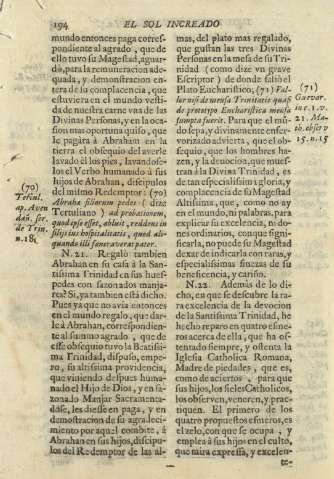 194
EL SOL INCREADO
mundo entonces paga corres-
pondiente al agrado, que de
ello tuvo su Magestad, aguar-
dò, para la remuneracion ade-
quada, y demonstracion en-
tera de lo complacencia, que
estuviera en el mundo vesti-
da de nuestra carne vna de las
Divinas Personas, y en la oca-
sion mas oportuna quiso, que
le pagàra à Abrahan en la
tierra el obsequio del averle
lavado èl los pies, lavandose-
los el Verbo humanado à sus
hijos de Abrahan, discipulos
del mismo Redemptor: (70)
Abrahæ filiorum pedes (dize
Tertuliano) ad probationem,
quod ipse esset, abluit, reddens in
filijs ius hospitalitatis, quod ali-
quando illi fæneraverat pater.
(70)
Tertul.
ap. Aven
dañ. ser.
de Trin.
n. 18.
N. 21. Regalò tambien
Abrahan en su casa à la San-
tissima Trinidad en sus hues-
pedes con sazonados manja-
res? Si, ya tambien està dicho.
Pues ya que no avia entonces
en el mundo regalo, que dar-
le à Abrahan, correspondien-
te al summo agrado, que de
este obsequio tuvo la Beatissi-
ma Trinidad, dispuso, empe-
ro, su altissima providencia,
que viniendo despues huma-
nado el Hijo de Dios, y en sa-
zonado Manjar Sacramenta-
dose, les diesse en paga, y en
demostracion de su agradeci-
miento por aquel combite, à
Abrahan en sus hijos, discipu-
los del Redemptor de las al-
mas, del plato mas regalado,
que gustan las tres Divinas
Personas en la mesa de su Tri-
nidad (como dize vn grave
Escriptor) de donde saliò el
Plato Eucharistico, (71)
(71)
21. Ma-
th. observ
15. n. 15
Para que el mú-
do sepa, y divinamente enfer-
vorizado advierta, que el ob-
sequio, que los hombres ha-
zen, y la devocion, que mues-
tran à la Divina Trinidad, es
de tan especialissima gloria, y
complacencia de su Magestad
Altissima, que, como no ay
en el mundo, ni palabras, para
explicar su excelencia, ni do-
nes ordinarios, con que signifi-
carla, no puede su Magestad
dexar de indicarla con raras, y
especialissimas finezas de su
beneficencia, y cariño.
N. 22. Además de lo di-
cho, en que se descubre la ra-
ra excelencia de la devocion
de la Santissima Trinidad, he
hecho reparo en quatro esme-
ros acerca de ella, que ha os-
tentado siempre, y ostenta la
Iglesia Catholica Romana,
Madre de piedades, que es,
como de aciertos, para que
sus hijos, los fieles Catholicos,
los observen, veneren, y prac-
tiquen. El primero de los
quatro propuestos esmeros, es
el zelo, con que se ocupa, y
emplea à sus hijos en el culto,
que mira expressa, y excelen-
te-